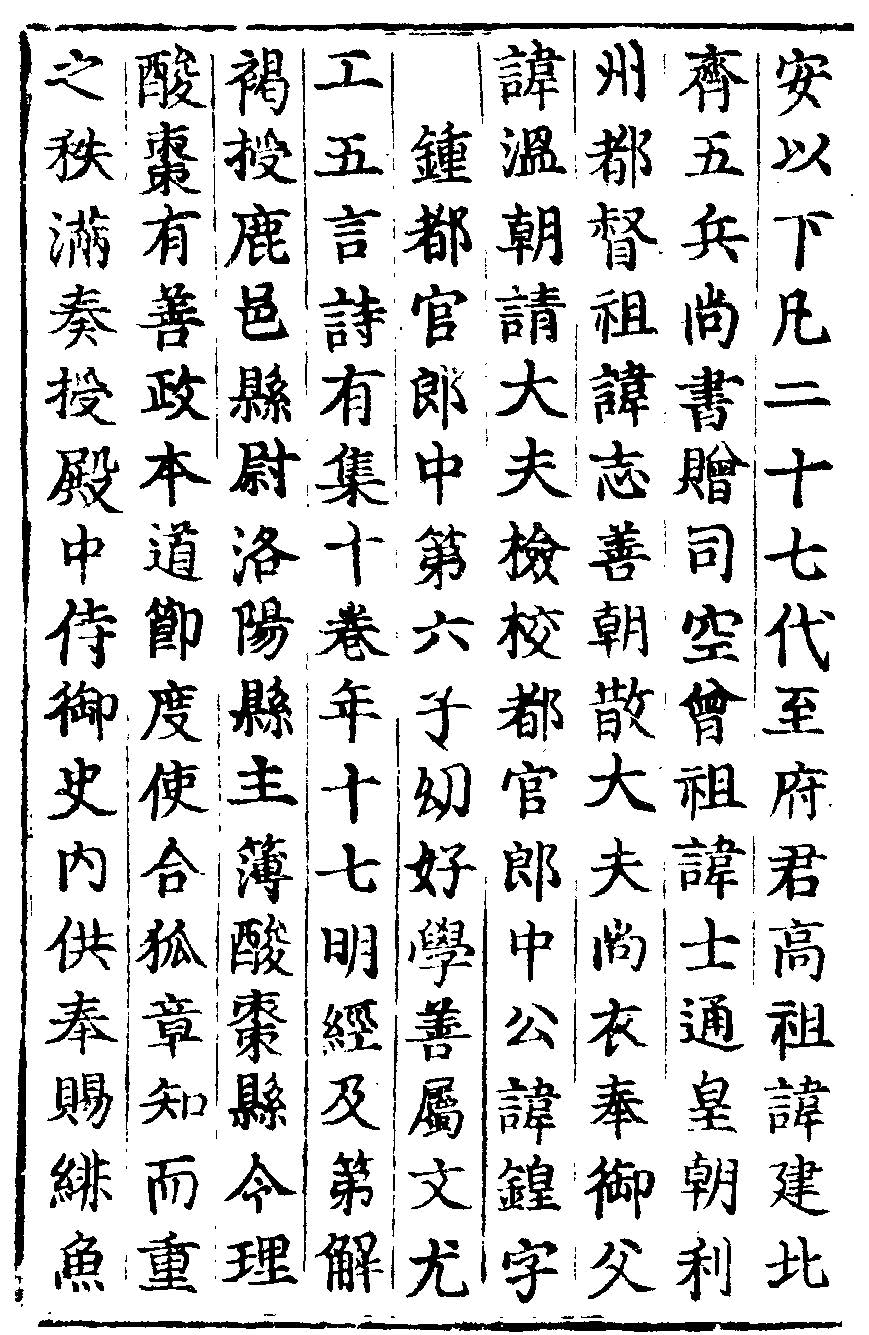 安以下凡二十七代至府君高祖諱建北
齊五兵尚書贈司空曾祖諱士通皇朝利
州都督祖諱志善朝散大夫尚衣奉御父
諱溫朝請大夫檢校都官郎中公諱鍠字
鍾都官郎中第六子幼好學善屬文尤
工五言詩有集十卷年十七明經及第解
褐授鹿邑縣尉洛陽縣主薄酸棗縣令理
酸棗有善政本道節度使令狐章知而重
之秩滿奏授殿中侍御史內供奉賜緋魚